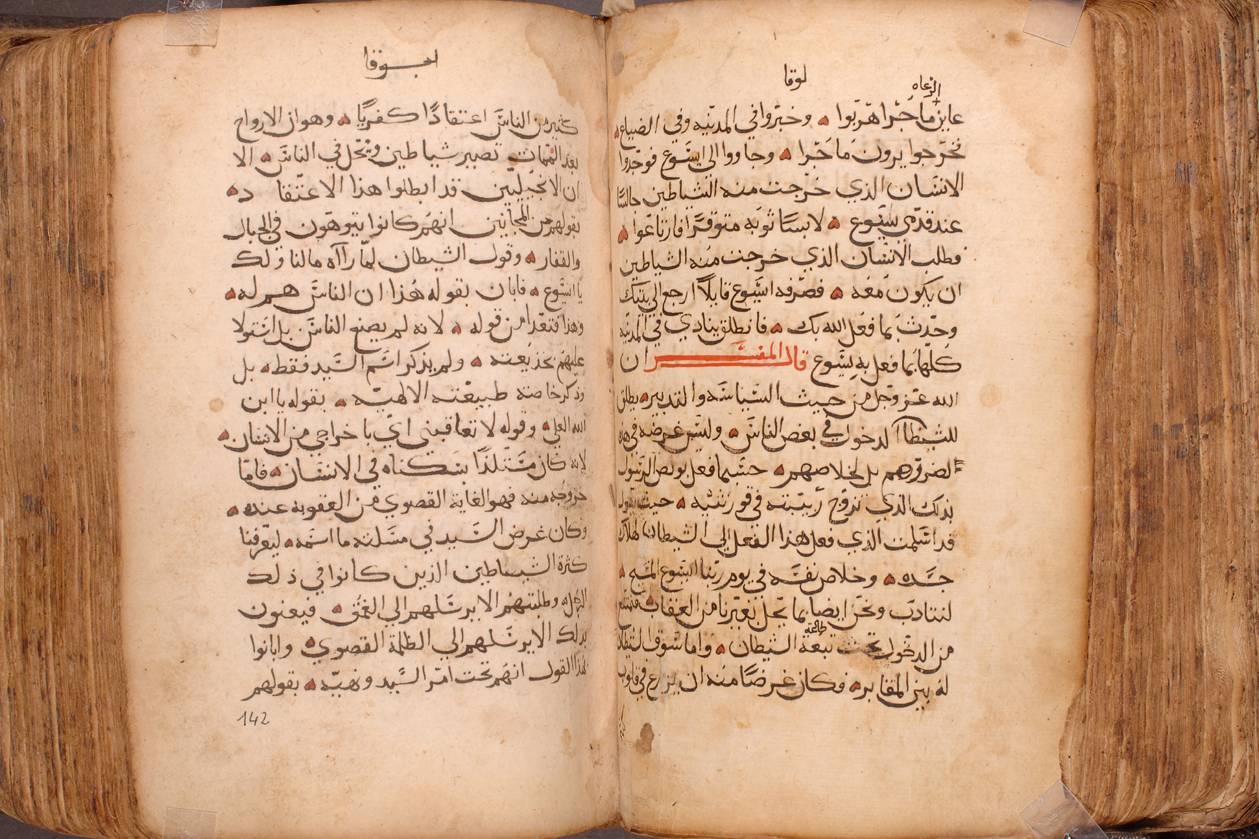 لوقا
الرعاه
عاين ما جرا هربوا ۞ وخبروا في المدينه وفي الضياع
فخرجوا يرون ما جرا ۞ وجاووا الى ايسوع فوجدوا
الانسان الذي خرجت منه الشياطين جالسًا
عند قدمي يسوع ۞ لابسًا ثوبه متوقرًا فارتاعوا ۞
وطلب الانسان الذي خرجت منه الشياطين
ان يكون معه ۞ فصرفه ايسوع قايلاً ارجع الى بيتك
وحدث بما فعل الله بك ۞ فانطلق ينادي في المدينه
كلها بما فعل به يسوع قال المفسر ان
الله عز وجل من حيث السياسه والتدبير ۞ يطلق
للشيطان الدخول في بعض الناس ۞ وليس غرضه في هذه
لضررهم بل لخلاصهم ۞ حسبما فعل بولص الرسول
بذلك الذي تزوج ربيبته في قورنثيه ۞ حيث يقول
قد اسلمت الذي فعل هذا الفعل الى الشيطان لهلاك
جسده ۞ وخلاص نفسه في يوم ربنا ايسوع المسيح ۞
لنتادب ونحن ايضًا بما تحل بغيرنا من العقاب ۞ فنمتنع
من الدخول تحت تبعة الشيطان ۞ واما شوف الشيطان
طاعة
له بين المقابر ۞ فكان غرضًا منه ان يزرع في قلوب
لوقا
كثير من الناس اعتقادًا كفريًا ۞ وهو ان الارواح
بعد الممات تصير شياطين وتحل في الناس ۞ الا
ان الانجيليين قد ابطلوا هذا الاعتقاد ۞
بقولهم عن المجانين انهم كانوا يتوهون في الجبال
والقفار ۞ وقول الشيطان لما راآه ما لنا ولك
يا ايسوع ۞ فابان بقوله هذا ان الناس هم له ۞
وهذا فتعدا من قوله ۞ لانه لم يصنع الناس بل استولا
عليهم بخديعته ۞ ولم يذكر اسم السيد فقط ۞ بل
وذكر خاصة طبيعته الالهيه ۞ بقوله يا ابن
الله العلي ۞ وقوله لا تعاقبني اي باخراجي من الانسان ۞
لانه كان متلذذًا بسكناه في الانسان ۞ فاما
خروجه منه فهو الغاية القصوي من العقوبه عنده ۞
وكان غرض السيد في مسلته ما اسمه ۞ ليعرفنا
كثرة الشياطين الذين كانوا في ذلك
الرجل ۞ وطلبتهم الا يرسلهم الى العمق ۞ فيعنون
بذلك الا يرسلهم الى الظلمة القصوي ۞ وابانوا
بهذا القول انهم تحت امر السيد ونهيه ۞ بقولهم
142